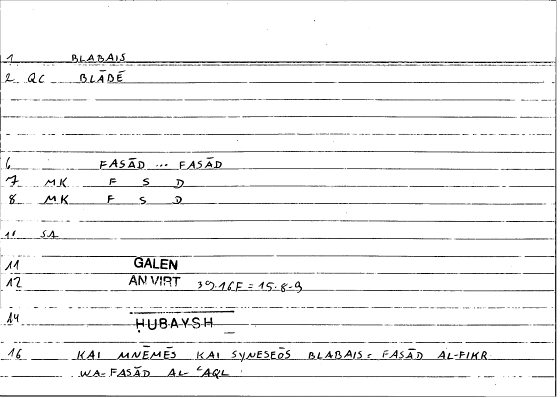 1 BLABAIS
2 QC BLĀDĒ
6 FASĀD ... FASĀD
7 MK F S D
8 MK F S D
10 SA
11 GALEN
12 AN VIRT 39.16F = 15.8-9
14 ḤUBAYSH
16 KAI MNĒMĒS KAI SYNESEŌS BLABAIS = FASĀD AL-FIKR
WA-FASĀD AL-ʿAQL